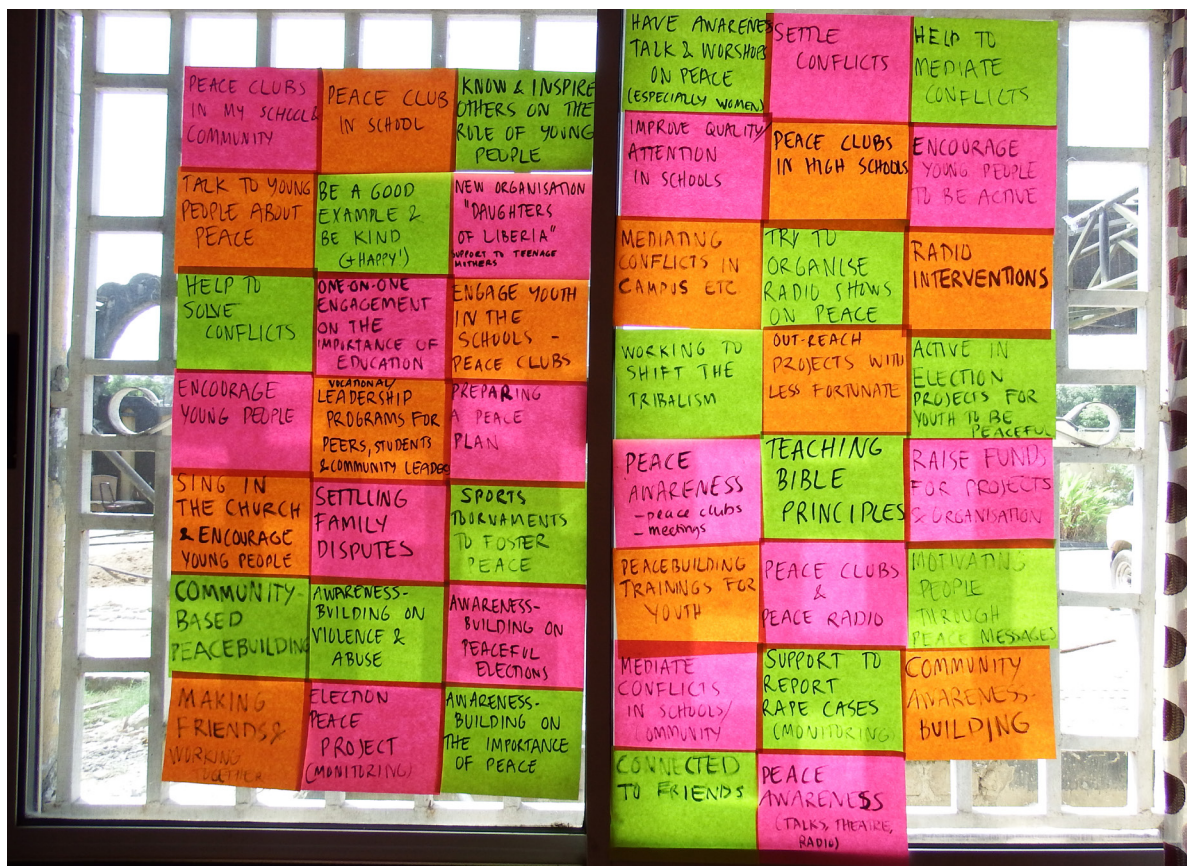 PEACE CLUBS
IN MY SCHOOL &
COMMUNITY
PEACE CLUB
IN SCHOOL
KNOW & INSPIRE
OTHERS ON THE
ROLE OF YOUNG
PEOPLE
TALK TO YOUNG
PEOPLE ABOUT
PEACE
BE A GOOD
EXAMPLE &
BE KIND
(+HAPPY!)
NEW ORGANISATION
"DAUGHTERS
OF LIBERIA"
SUPPORT TO TEENAGE
MOTHERS
HELP TO
SOLVE
CONFLICTS
ONE-ON-ONE
ENGAGEMENT
ON THE
IMPORTANCE OF
EDUCATION
ENGAGE YOUTH
IN THE
SCHOOLS -
PEACE CLUBS
ENCOURAGE
YOUNG PEOPLE
VOCATIONAL/
LEADERSHIP
PROGRAMS FOR
PEERS, STUDENTS
& COMMUNITY LEADERS
PREPARING
A PEACE
PLAN
SING IN
THE CHURCH
& ENCOURAGE
YOUNG PEOPLE
SETTLLING
FAMILY
DISPUTES
SPORTS
TOORNAMENTS
TO FOSTER
PEACE
COMMUNITY-
BASED
PEACEBUILDING
AWARENESS-
BUILDING ON
VIOLENCE &
ABUSE
AWARENESS-
BUILDING ON
PEACEFUL
ELECTIONS
MAKING
FRIENDS &
WORKING
TOGETHER
ELECTION
PEACE
PROJECT
(MONITORING)
AWARENESS-
BUILDING ON
THE IMPORTANCE
OF PEACE
HAVE AWARENES
TALK & WORSHOPS
ON PEACE
(ESPECIALLY WOMEN)
SETTLE
CONFLICTS
HELP TO
MEDIATE
CONFLICTS
IMPROVE QUALITY/
ATTENTION
IN SCHOOLS
PEACE CLUBS
IN HIGH SCHOOLS
ENCOURAGE
YOUNG PEOPLE
TO BE ACTIVE
MEDIATING
CONFLICTS IN
CAMPUS ETC
TRY TO
ORGANISE
RADIO SHOWS
ON PEACE
RADIO
INTERVENTIONS
WORKING TO
SHIFT THE
TRIBALISM
OUT-REACH
PROJECTS WITH
LESS FORTUNATE
ACTIVE IN
ELECTION
PROJECTS FOR
YOUTH TO BE
PEACEFUL
PEACE
AWARENESS
- peace clubs
- meetings
TEACHING
BIBLE
PRINCIPLES
RAISE FUNDS
FOR PROJECTS
& ORGANISATION
PEACEBUILDING
TRAINNGS FOR
YOUTH
PEACE CLUBS
&
PEACE RADIO
MOTIVATING
PEOPLE
THROUGH
PEACE MESSAGES
MEDIATE
CONFLICTS
IN SCHOOLS/
COMMUNITY
SUPPORT TO
REPORT
RAPE CASES
(MONITORING)
COMMUNITY
AWARENESS-
BUILDING
CONNECTED
TO FRIENDS
PEACE
AWARENESS
(TALKS, THEATRE,
RADIO)